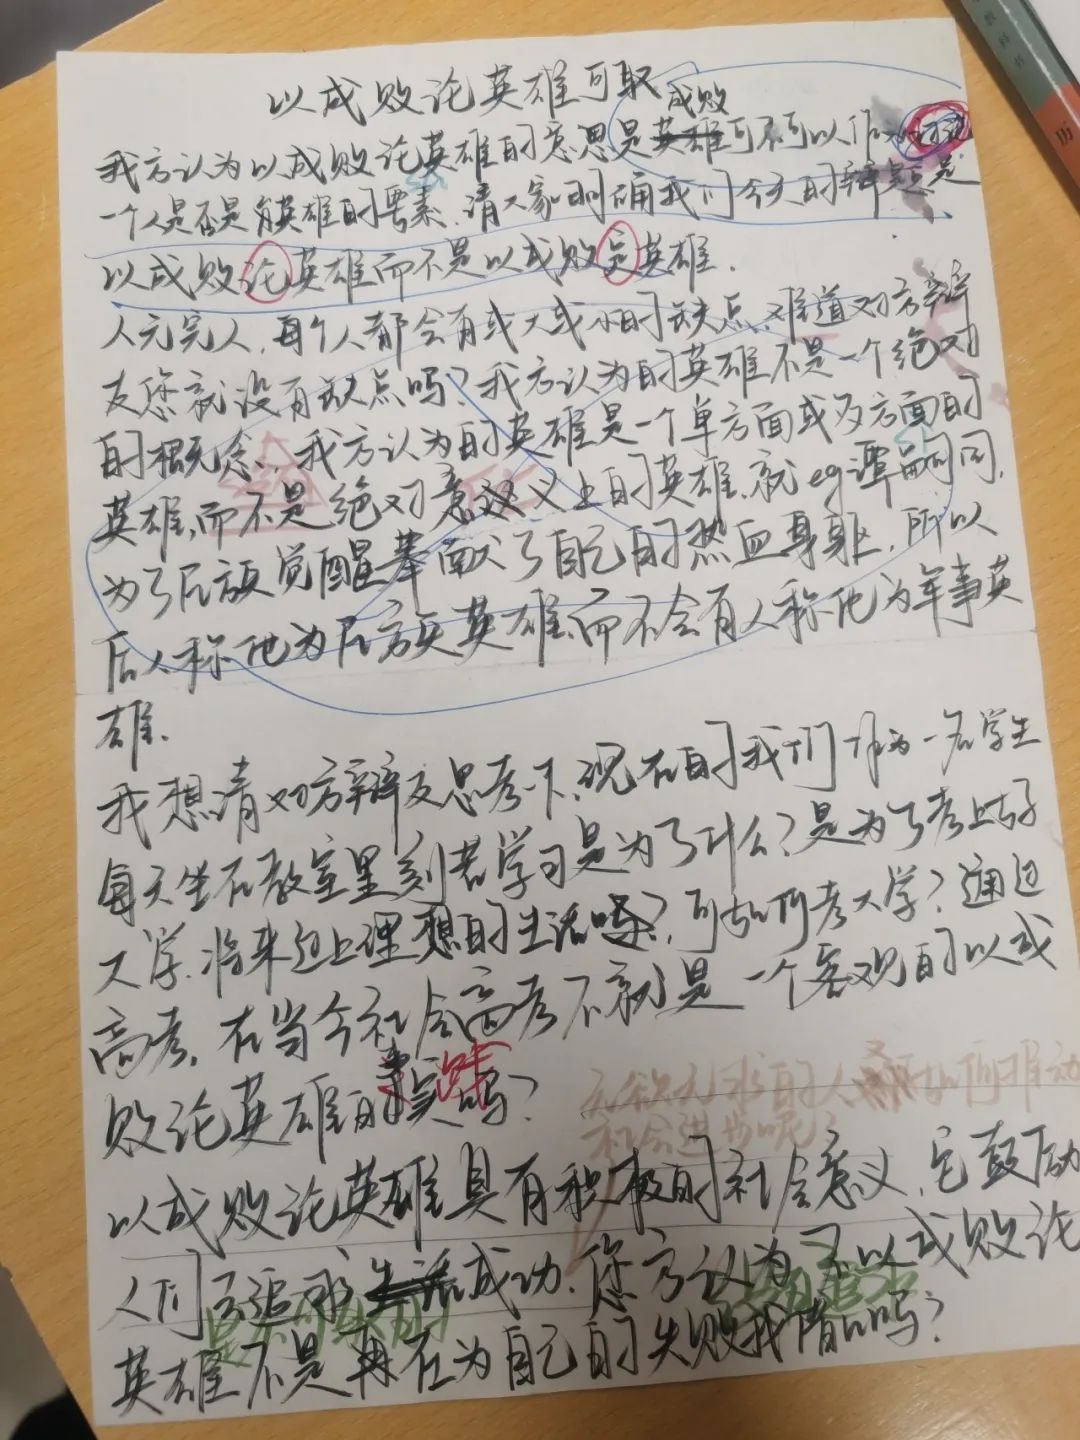 以成败论英雄可取
成败
我方认为以成败论英雄的意思是英雄可不可以作为讨论
一个人是否是英雄的要素,请大家明确我们今天的辩题是
以成败论英雄而不是以成败定英雄.
人无完人,每个人都会有或大或小的缺点,难道对方辩
友您就没有缺点吗?我方认为的英雄不是一个绝对
的概念,我方认为的英雄是一个单方面或多方面的
英雄,而不是绝对意义上的英雄,就eg谭嗣同,
为了民族觉醒奉献了自己的热血身躯,所以
后人称他为民族英雄,而不会有人称他为军事英
雄.
我想请对方辩友思考下,现在的我们作为一名学生
每天坐在教室里刻苦学习是为了什么?是为了考上好
大学,将来过上理想的生活,可如何考大学?通过
高考,在当今社会高考不就是一个客观的以成
败论英雄的实践吗?
无欲无求的人如何推动
社会进步呢?
以成败论英雄具有积极的社会意义,它鼓励
人们去追求成功,您方认为不以成败论
是不可取的
英雄不是再在为自己的失败找借口吗?
历